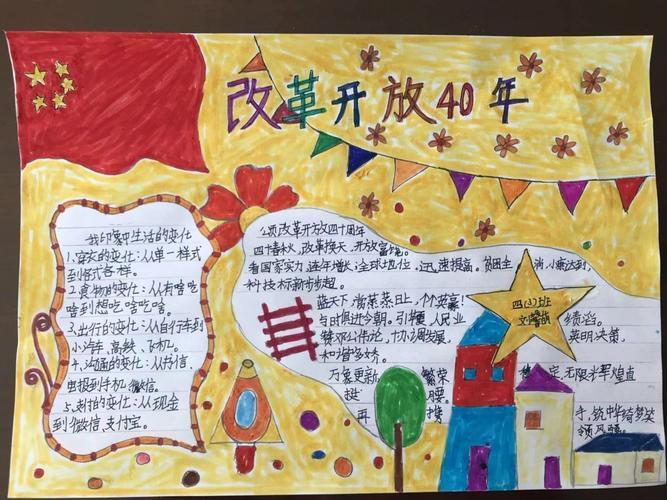 改革开放40年
我印象中生活的变化
1.穿衣的变化:从单一样式
到各式各样。
2.食物的变化:从有啥吃
啥到想吃啥吃啥。
3.出行的变化:从自行车到
小汽车,高铁,飞机。
4.沟通的变化:从书信,
电报到手机,微信。
5.支付的变化:从现金
到微信,支付宝。
颂改革开放四十周年
四十春秋,改革换天,开放富
看国家实力,逐年增长,全球地位,迅速提高。
消,小康达到,
科技标新步步超。
蓝天下,蒸蒸日上,个个英豪!
与日俱进今朝。引 人民业绩滔。
继邓公伟论,协调发展,英明决策,
和谐多娇。
万象更新,繁荣
定,无限光辉煌直
挺 腰。
再 携手,筑中华绮梦笑
领风骚。
四(3)班